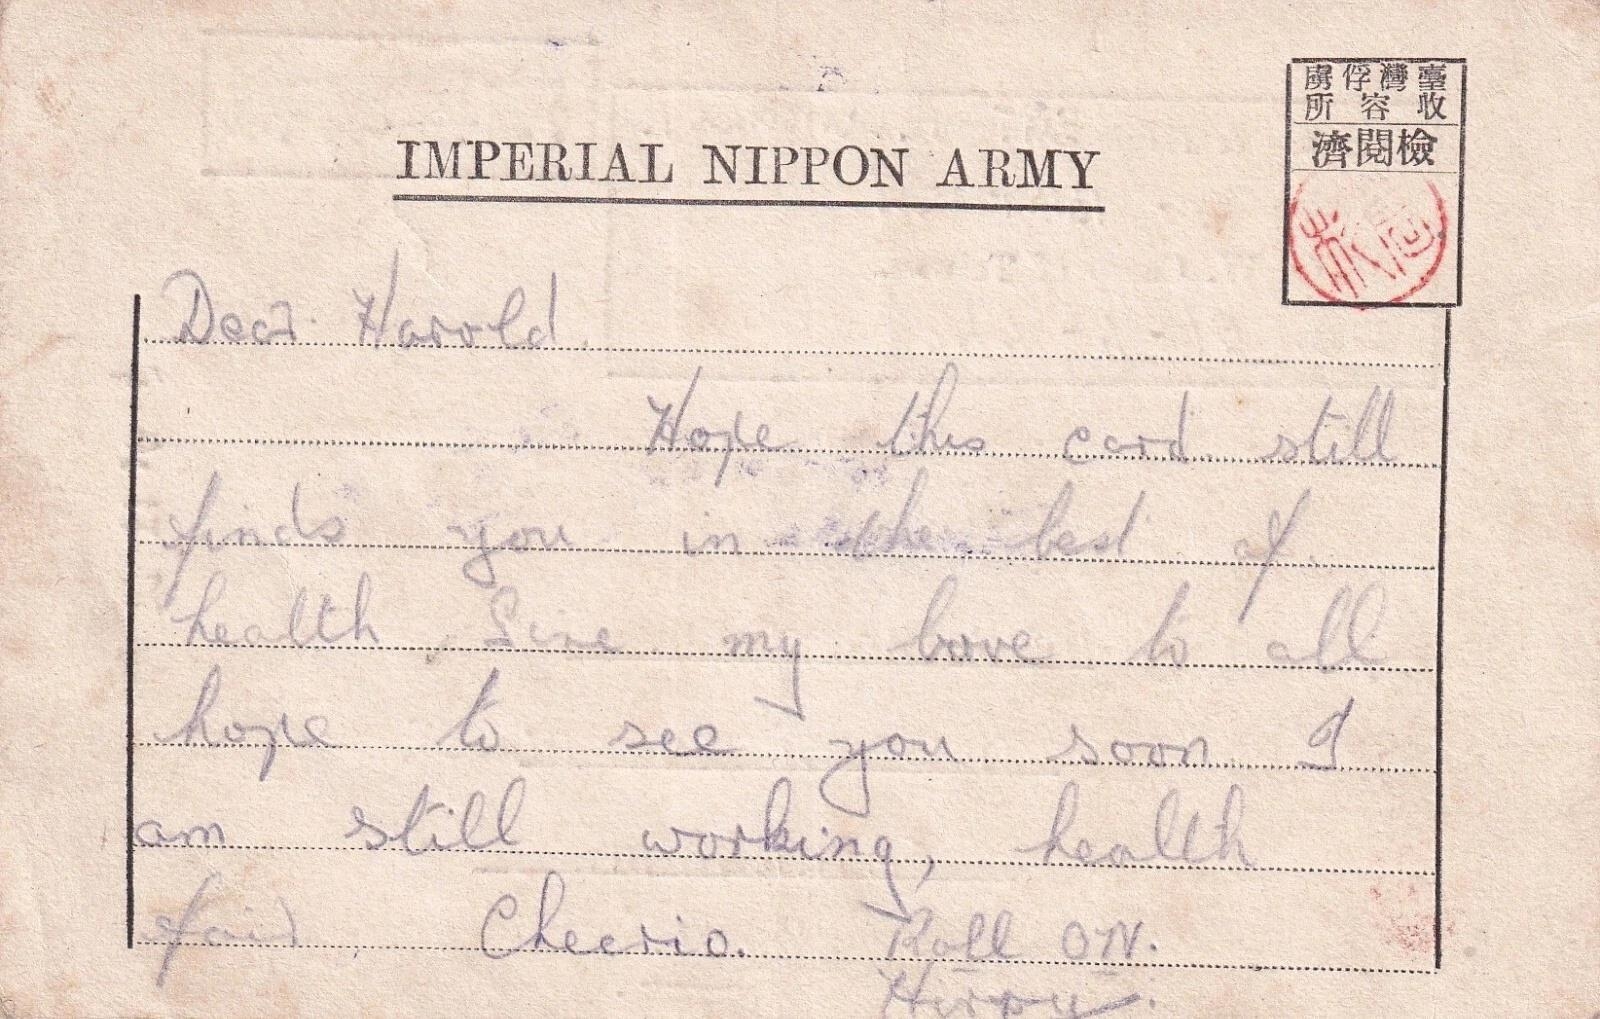 IMPERIAL NIPPON ARMY
臺灣俘虜
收容所
檢閱濟
Dear Harold.
Hope this card still
finds you in the best of
health Give my love to all
hope to see you soon I
am still working, health
fair. Cheerio. Roll ON.